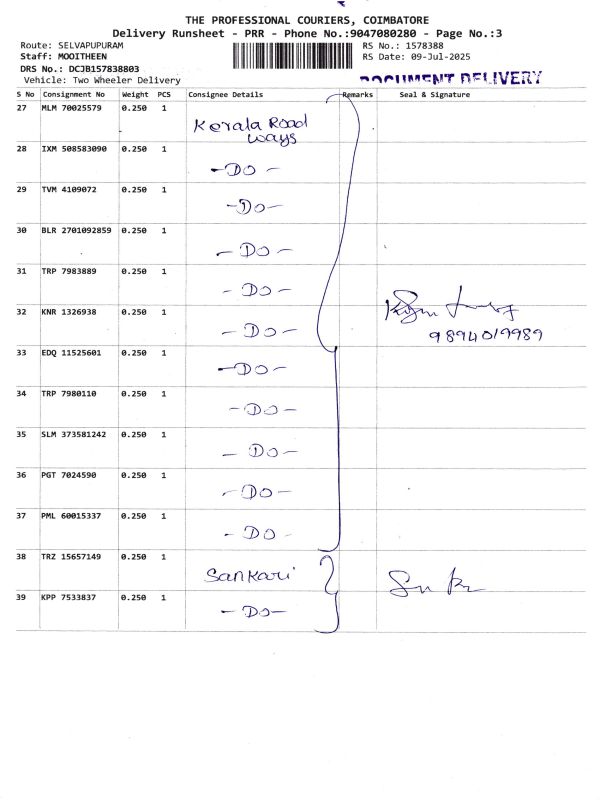 THE PROFESSIONAL COURIERS, COIMBATORE
Delivery Runsheet - PRR - Phone No.:9047080280 - Page No.:3
Route: SELVAPUPURAM
RS No.: 1578388
Staff: MOOITHEEN
RS Date: 09-Jul-2025
DRS No.: DCJB157838803
Vehicle: Two Wheeler Delivery
DOCUMENT DELIVERY
S No Consignment No Weight PCS Consignee Details Remarks Seal & Signature
27 MLM 70025579 0.250 1 Kerala Road
ways
28 IXM 508583090 0.250 1 -DO-
29 TVM 4109072 0.250 1 -DO-
30 BLR 2701092859 0.250 1 -DO-
31 TRP 7983889 0.250 1 -DO-
32 KNR 1326938 0.250 1 -DO-
9894019989
33 EDQ 11525601 0.250 1 -DO-
34 TRP 7980110 0.250 1 -DO-
35 SLM 373581242 0.250 1 -DO-
36 PGT 7024590 0.250 1 -DO-
37 PML 60015337 0.250 1 -DO-
38 TRZ 15657149 0.250 1 Sankari
39 KPP 7533837 0.250 1 -DO-